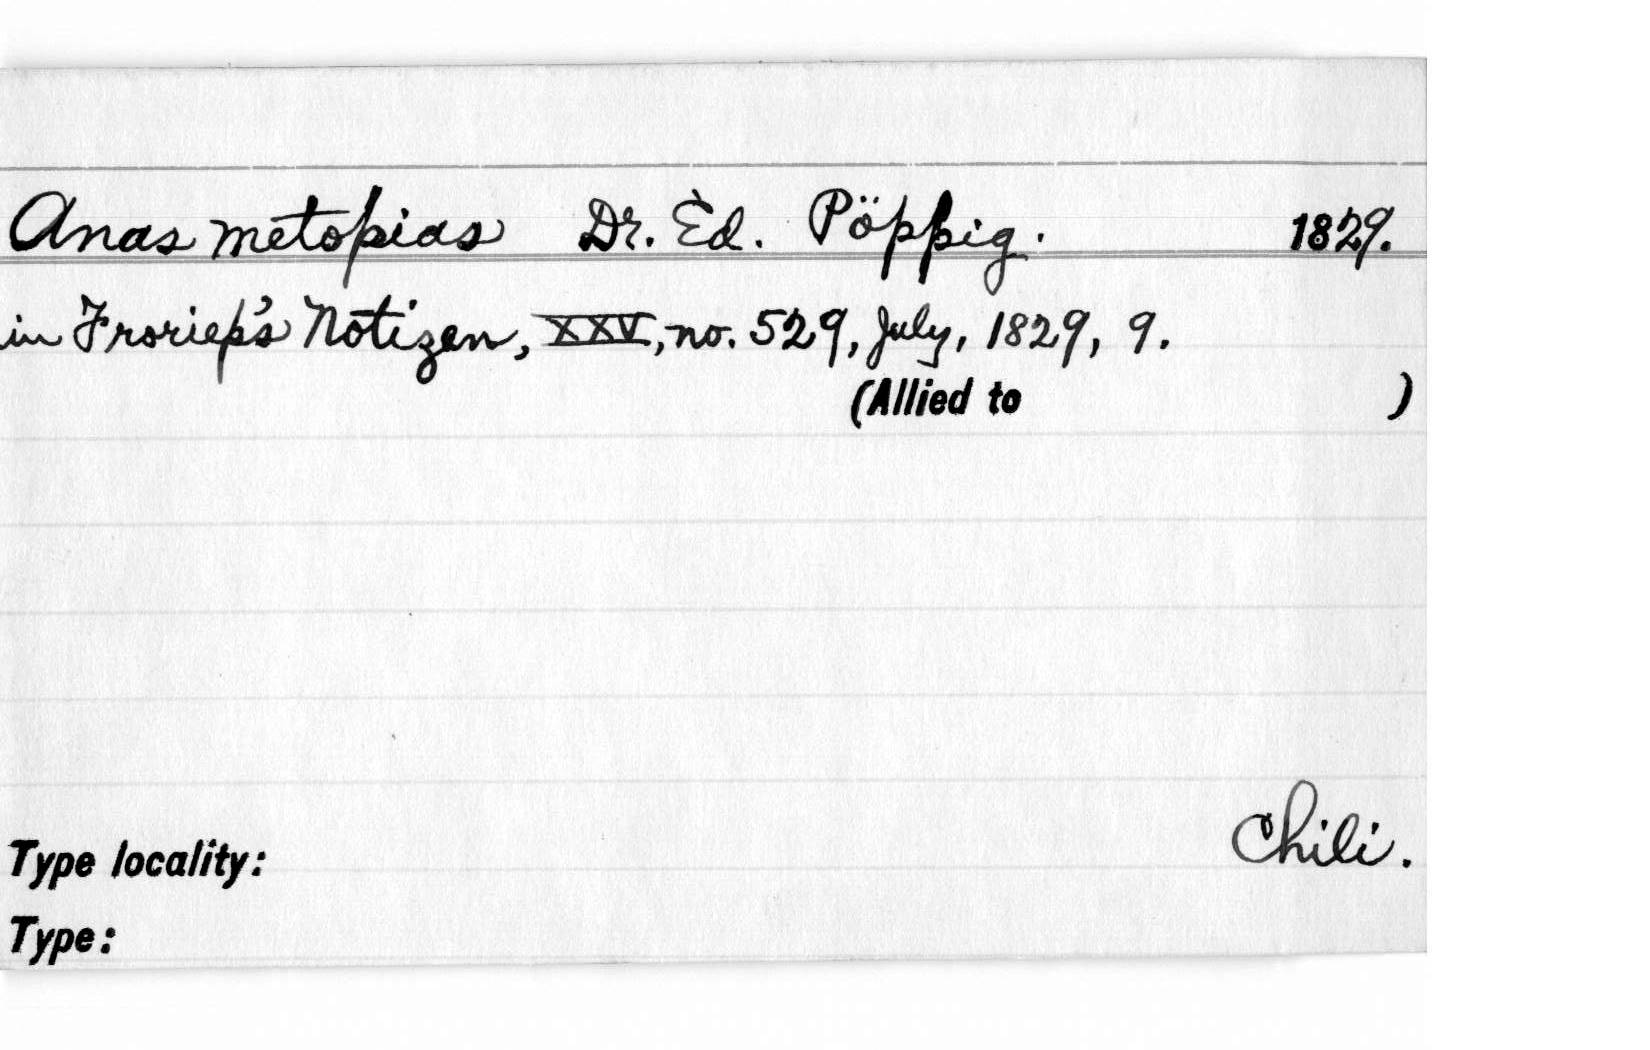 Anas metopias Dr. Ed. Pöppig. 1829.
in Froriep's Notizen, XXV, no. 529, July, 1829, 9.
(Allied to )
Chili.
Type locality:
Type: